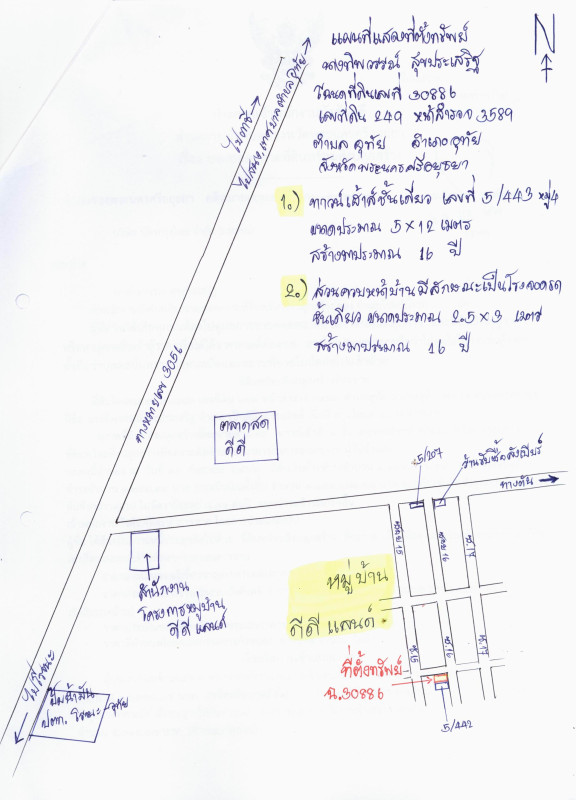 N
แผนที่แสดงที่ตั้งทรัพย์
นางทิพวรรณ์ สุขประเสริฐ
โฉนดที่ดินเลขที่ 30886
เลขที่ดิน 249 หน้าสำรวจ 3589
ตำบล อุทัย อำเภอ อุทัย
จังหวัดพระนครศรีอยุธยา
1.) ทาวน์เฮ้าส์ชั้นเดียว เลขที่ 5/443 หมู่4
ขนาดประมาณ 5 x 12 เมตร
สร้างมาประมาณ 16 ปี
2.) ส่วนควบหน้าบ้านมีลักษณะเป็นโรงจอดรถ
ชั้นเดียว ขนาดประมาณ 2.5 x 3 เมตร
สร้างมาประมาณ 16 ปี
ไปสนง.เทศบาลตำบลอุทัย
ทางหลวงเลข 3056
ตลาดสด
ดีดี
5/107
ทางตัน
ซอย 15
ซอย 16
ซ.17
สำนักงาน
โครงการหมู่บ้าน
ดีดี แลนด์
หมู่บ้าน
ดีดี แลนด์
ซ.15
ซ.16
ซ.17
ที่ตั้งทรัพย์
ฉ.30886
5/442
ไปโรจนะ
ปั๊มน้ำมัน
ปตท. โรจนะ-อุทัย